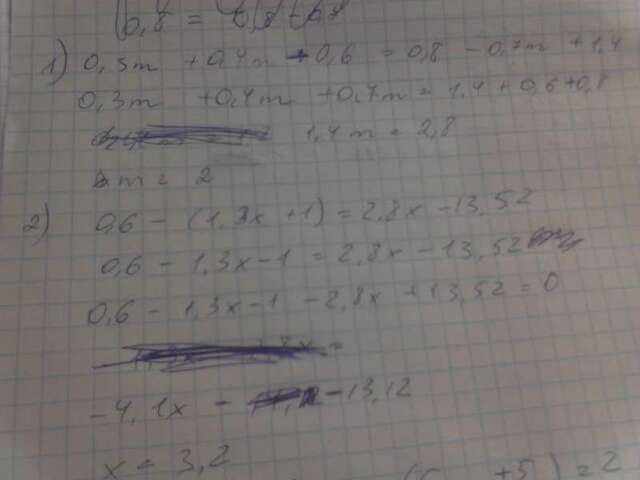 0,8 =
1) 0,3m + 0,4m + 0,6 = 0,8 - 0,7m + 1,4
0,3m + 0,4m + 0,7m = 1,4 + 0,6 + 0,8
1,4m = 2,8
m = 2
2) 0,6 - (1,3x + 1) = 2,8x - 13,52
0,6 - 1,3x - 1 = 2,8x - 13,52
0,6 - 1,3x - 1 - 2,8x + 13,52 = 0
-4,1x - -13,12
x = 3,2
+5) = 2